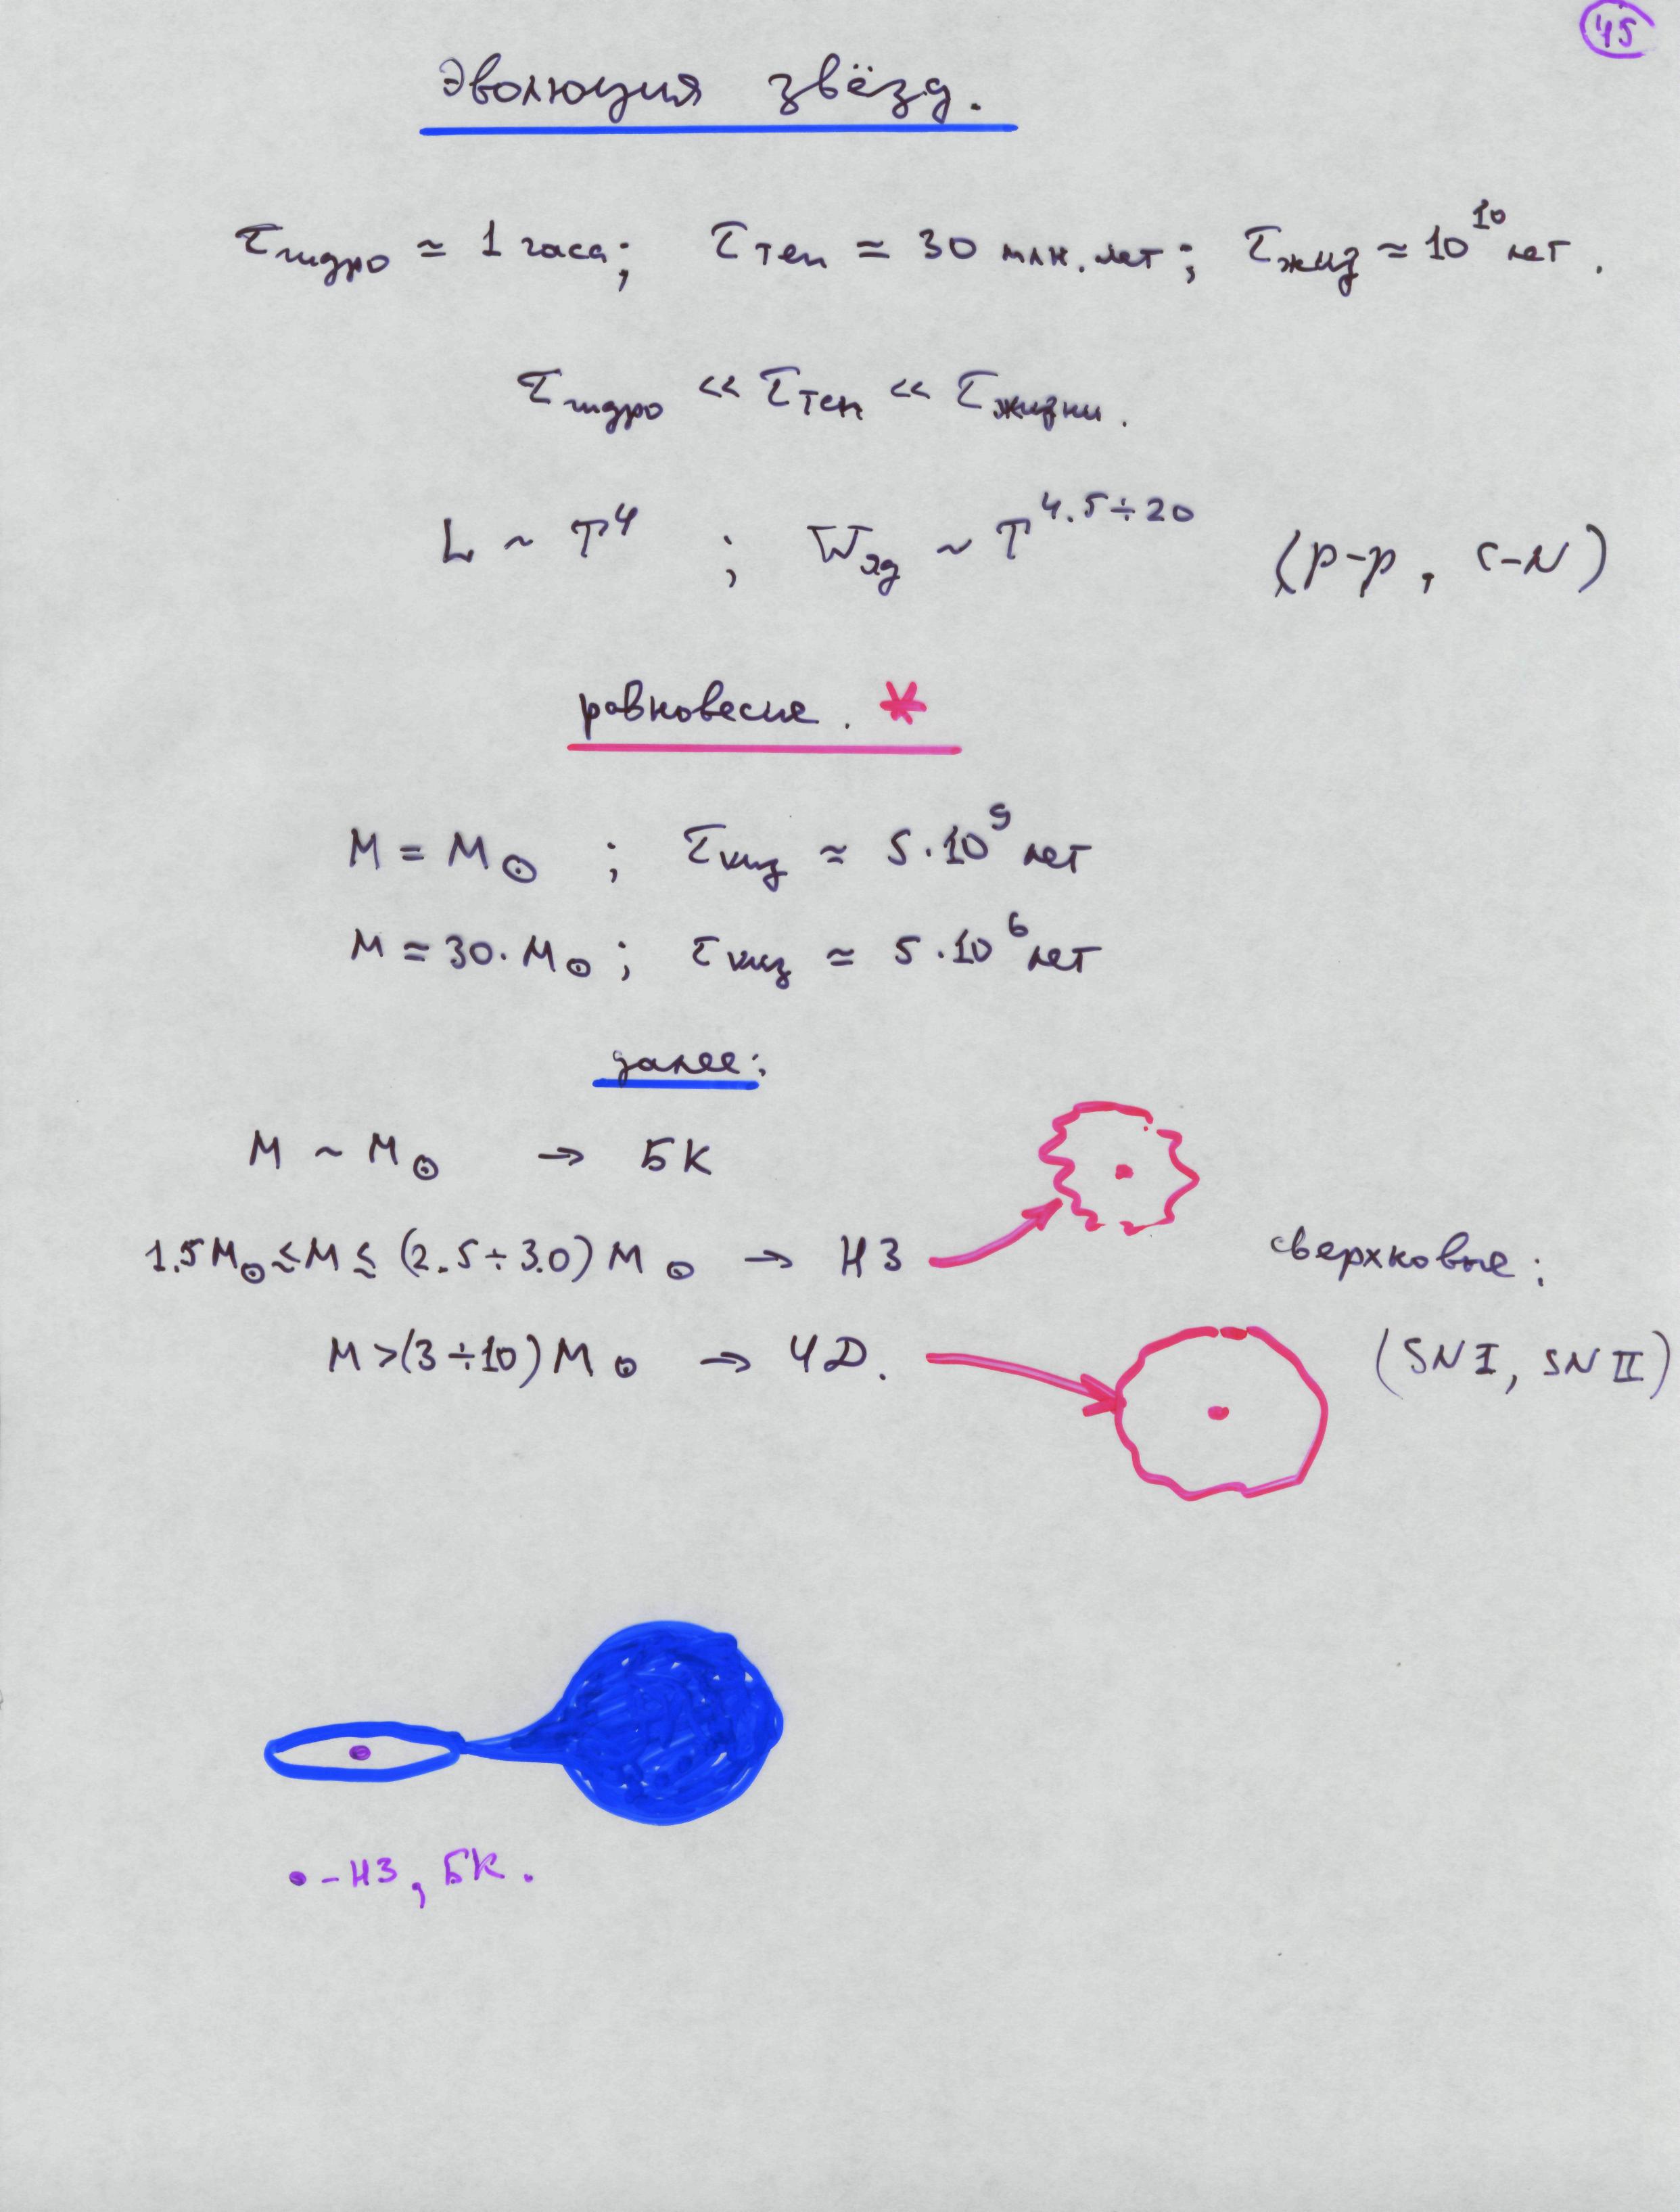 45
Эволюция звёзд.
τгидро ≃ 1 часа; τтеп ≃ 30 млн. лет; τжиз ≈ 10^10 лет.
τгидро << τтеп << τжизни.
L ~ T^4 ; Wяд ~ T^4.5÷20 (p-p, C-N)
равновесие. *
M = M⊙ ; τжиз ≈ 5·10^9 лет
M ≃ 30·M⊙ ; τжиз ≃ 5·10^6 лет
далее:
M ~ M⊙ → БК
1.5M⊙ ≲ M ≲ (2.5÷3.0) M⊙ → НЗ
сверхновые:
M >(3÷10) M⊙ → ЧД. (SN I, SN II)
• – НЗ, БК.